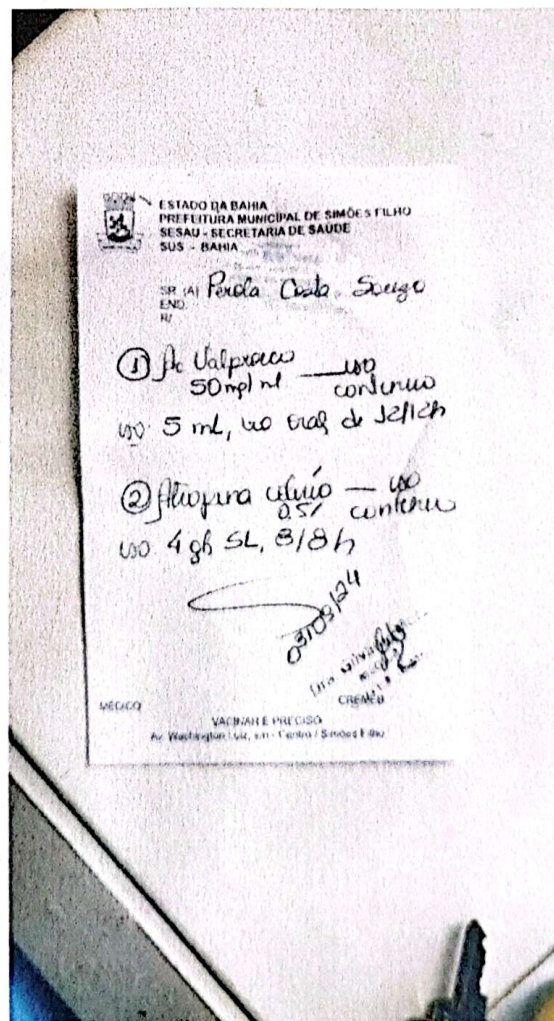 ESTADO DA BAHIA
PREFEITURA MUNICIPAL DE SIMÕES FILHO
SESAU - SECRETARIA DE SAÚDE
SUS - BAHIA
SR (A) Perola Costa Souza
END.
R/
① Ac Valproico — uso
50mg/ml contínuo
uso 5 mL, via oral de 12/12h
② Atropina colírio — uso
0,5% contínuo
uso 4 gts SL, 8/8h
03/09/24
Dra.
MÉDICO
CREMEB
VACINAR É PRECISO
Av. Washington Luiz, s/n - Centro / Simões Filho